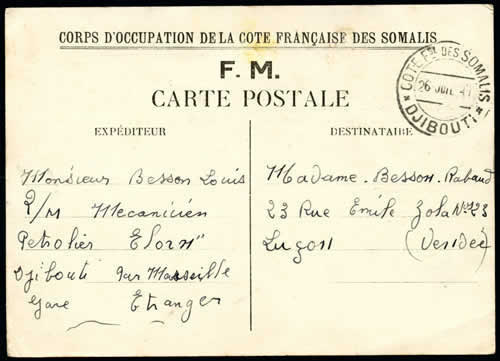 CORPS D'OCCUPATION DE LA COTE FRANÇAISE DES SOMALIS
F. M.
CARTE POSTALE
COTE FSE DES SOMALIS
26 JUIL
* DJIBOUTI *
EXPÉDITEUR
Monsieur Besson Louis
Mecanicien
Petrolier Elorn"
Djibouti par Marseille
Gare Etranger
DESTINATAIRE
Madame Besson-Rabaud
23 Rue Emile Zola No 23
Luçon (Vendée)